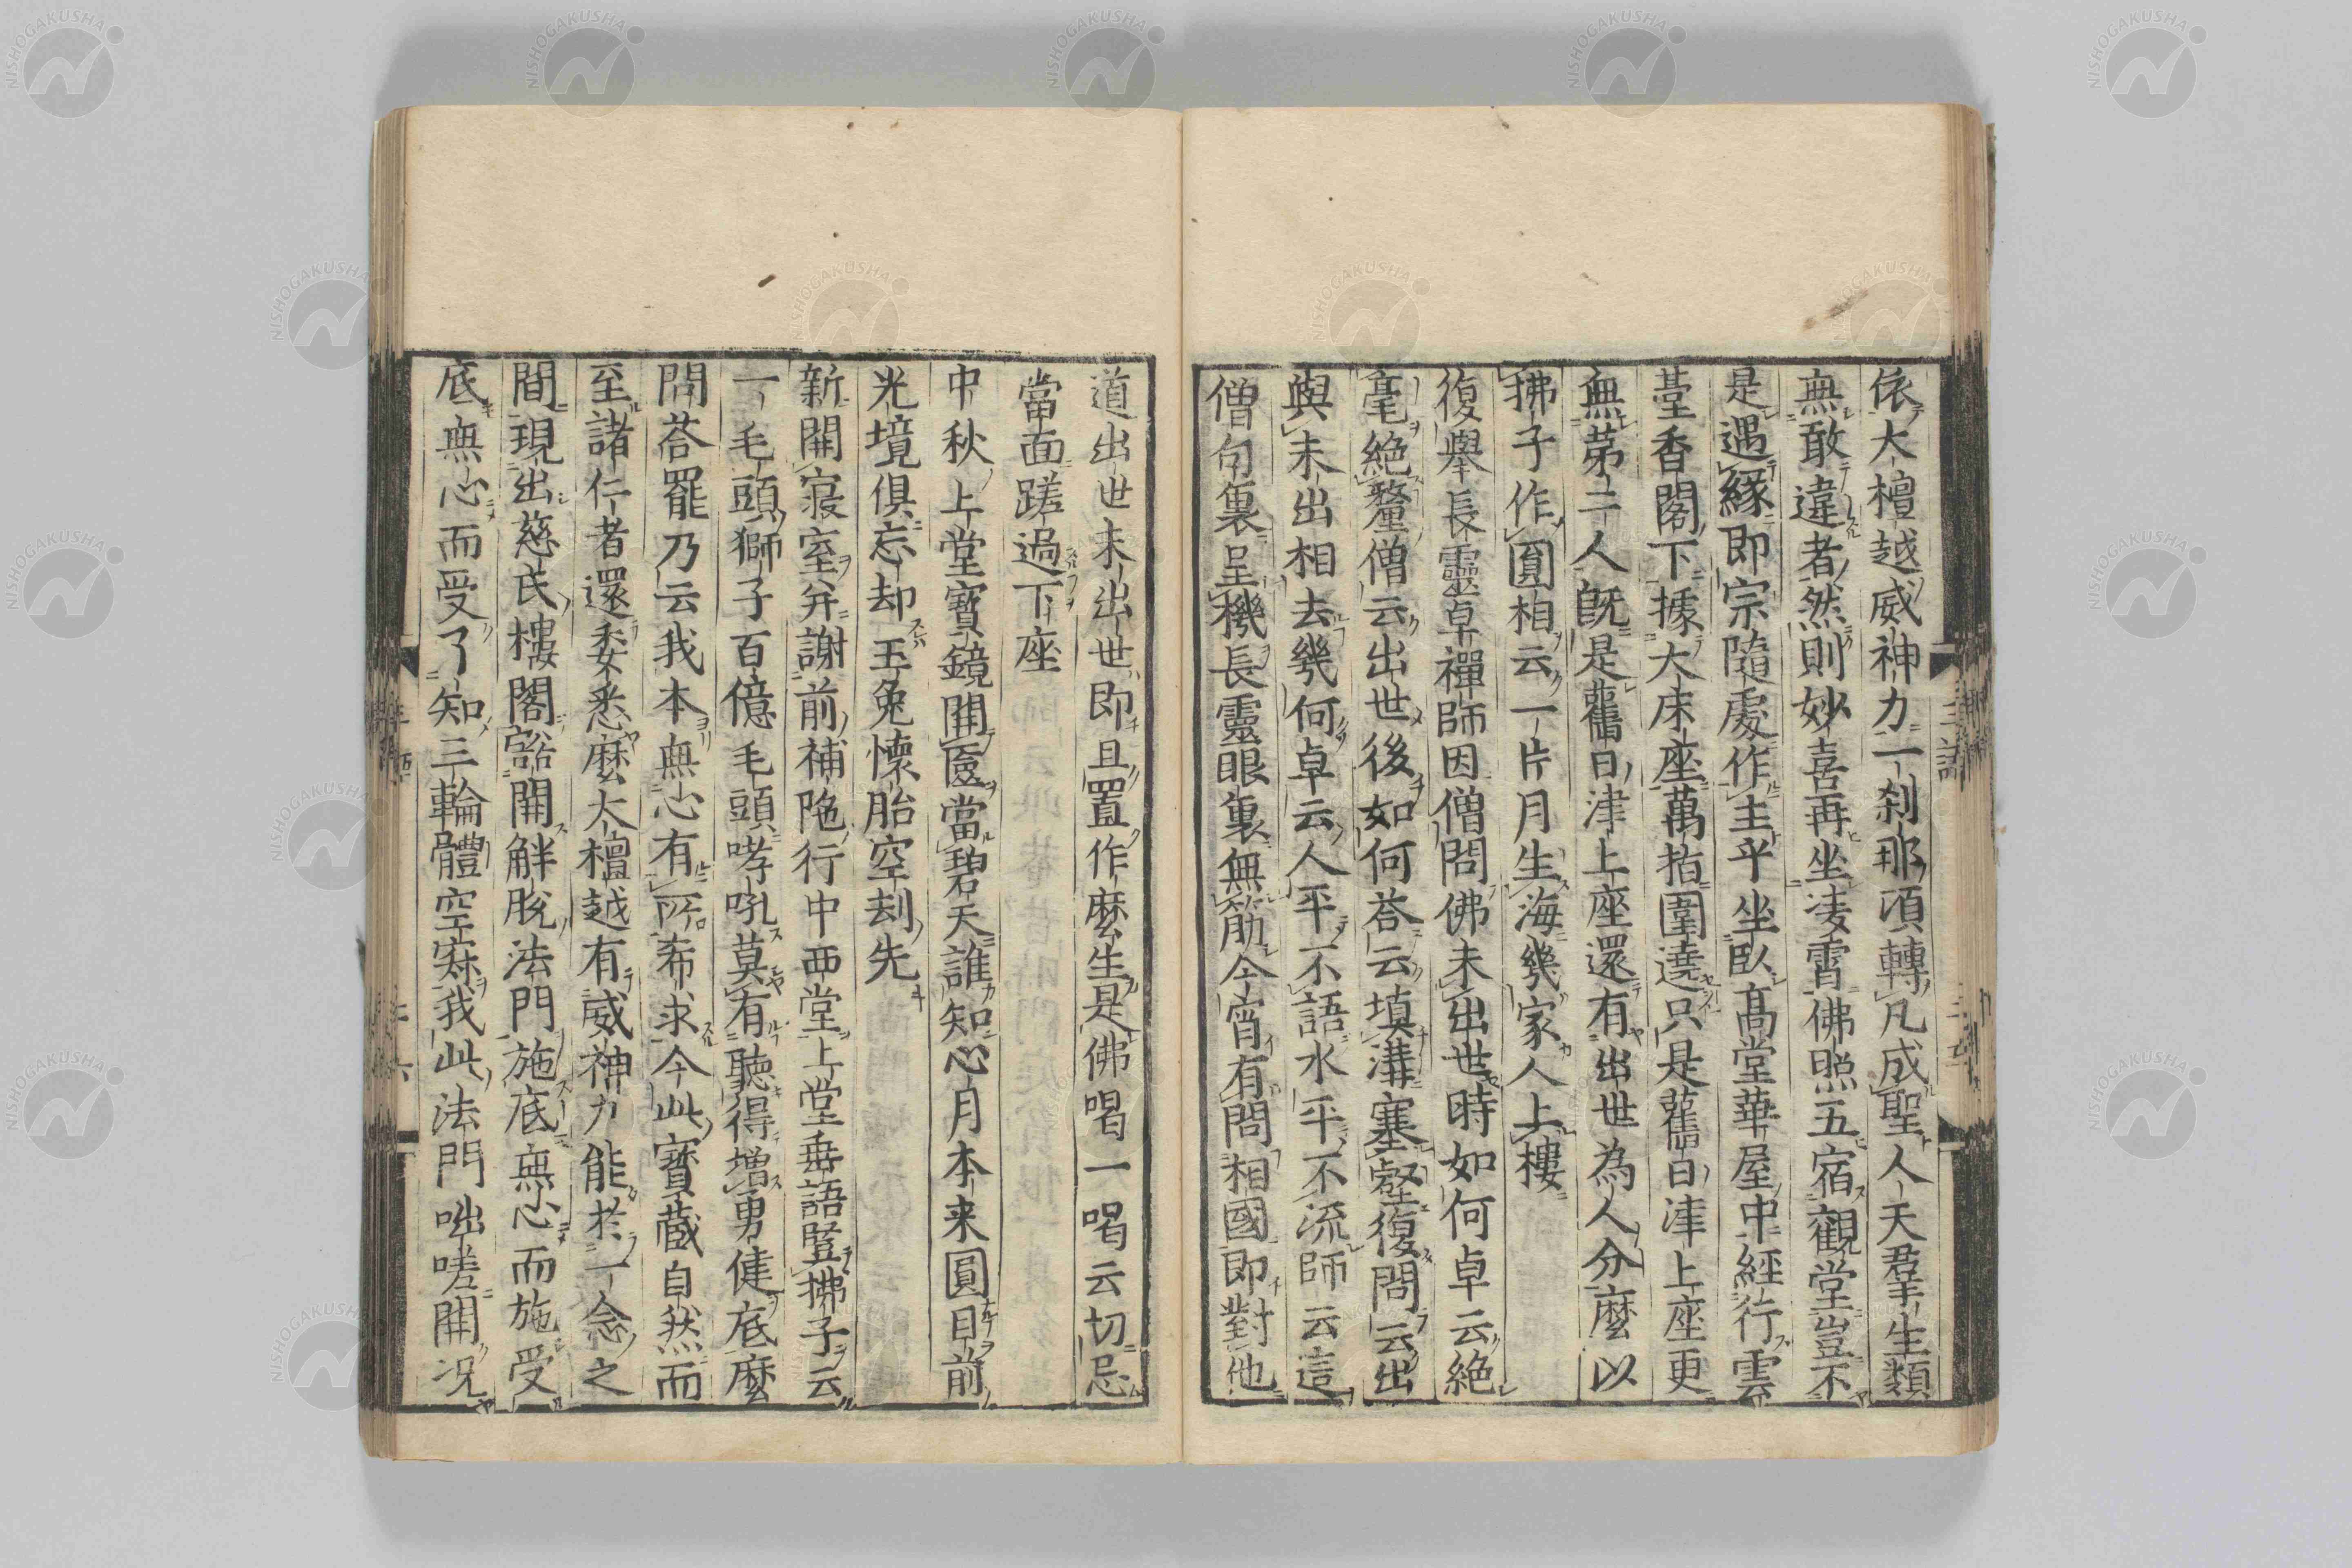 依大檀越威神力一刹那頃轉凡成聖人天羣生類
無敢違者然則妙喜再坐凌霄佛照五宿觀堂豈不
是遇緣即宗隨處作主乎坐臥高堂華屋中經行雲
臺香閣下據大床座萬指圍遶只是舊日津上座更
無第二人既是舊日津上座還有出世為人分麼以
拂子作圓相云一片月生海幾家人上樓
復舉長靈卓禪師因僧問佛未出世時如何卓云絶
毫絶釐僧云出世後如何荅云填溝塞壑復問云出
與未出相去幾何卓云人平不語水平不流師云這
僧句裏呈機長靈眼裏無筋今宵有問相國即對他
道出世未出世即且置作麼生是佛喝一喝云切忌
當面蹉過下座
中秋上堂寶鏡開匳當碧天誰知心月本来圓目前
光境倶忘却玉兔懷胎空刼先
新開寢室并謝前補陁行中西堂上堂垂語豎拂子云
一毛頭獅子百億毛頭哮吼莫有聽得増勇健底麼
問荅罷乃云我本無心有所希求今此寶藏自然而
至諸仁者還委悉麼大檀越有威神力能於一念之
間現出慈氏樓閣豁開解脱法門施底無心而施受
底無心而受了知三輪體空寂我此法門咄嗟開況